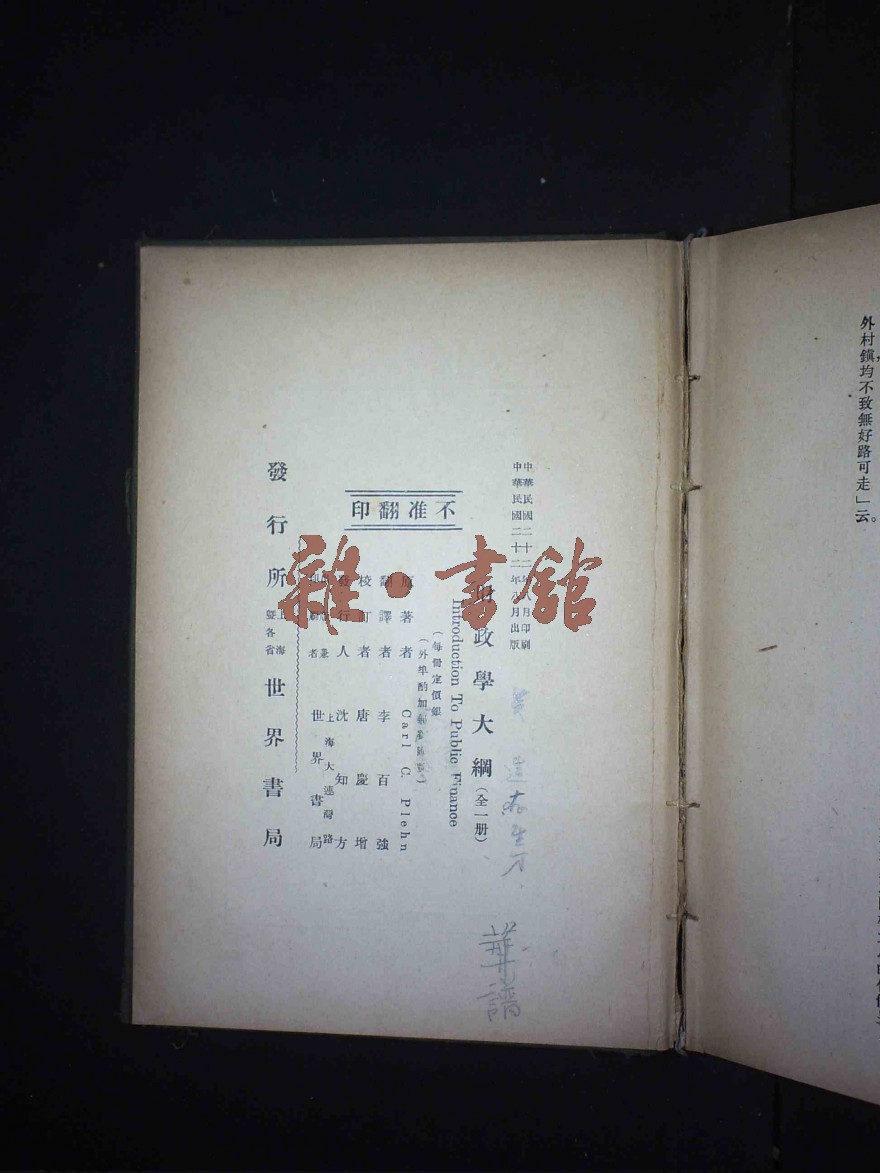 外村鎮均不致無好路可走」云。
中華民國二十二年 月印刷
中華民國二十二年八月出版
財政學大綱(全一册)
Introduction To Public Finance
(每冊定價銀
(外埠酌加
不准翻印
原著者 Carl C. Plehn
翻譯者 李百強
校訂者 唐慶增
發行人 沈知方
上海大連灣路
世界書局
發行所 上海暨各省 世界書局
雜·書館
華譜